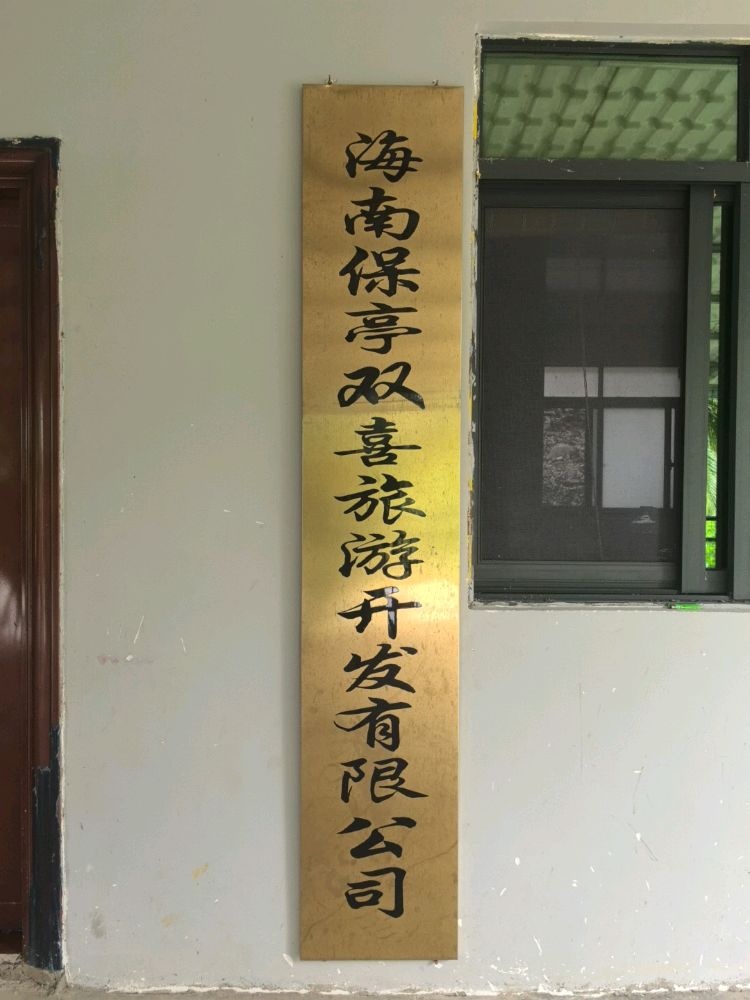 海南保亭双喜旅游开发有限公司